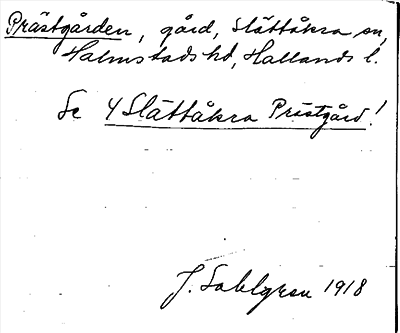 Prästgården, gård, Slättåkra sn,
Halmstads hd, Hallands l.
Se 4 Slättåkra Prästgård!
J. Sahlgren 1918